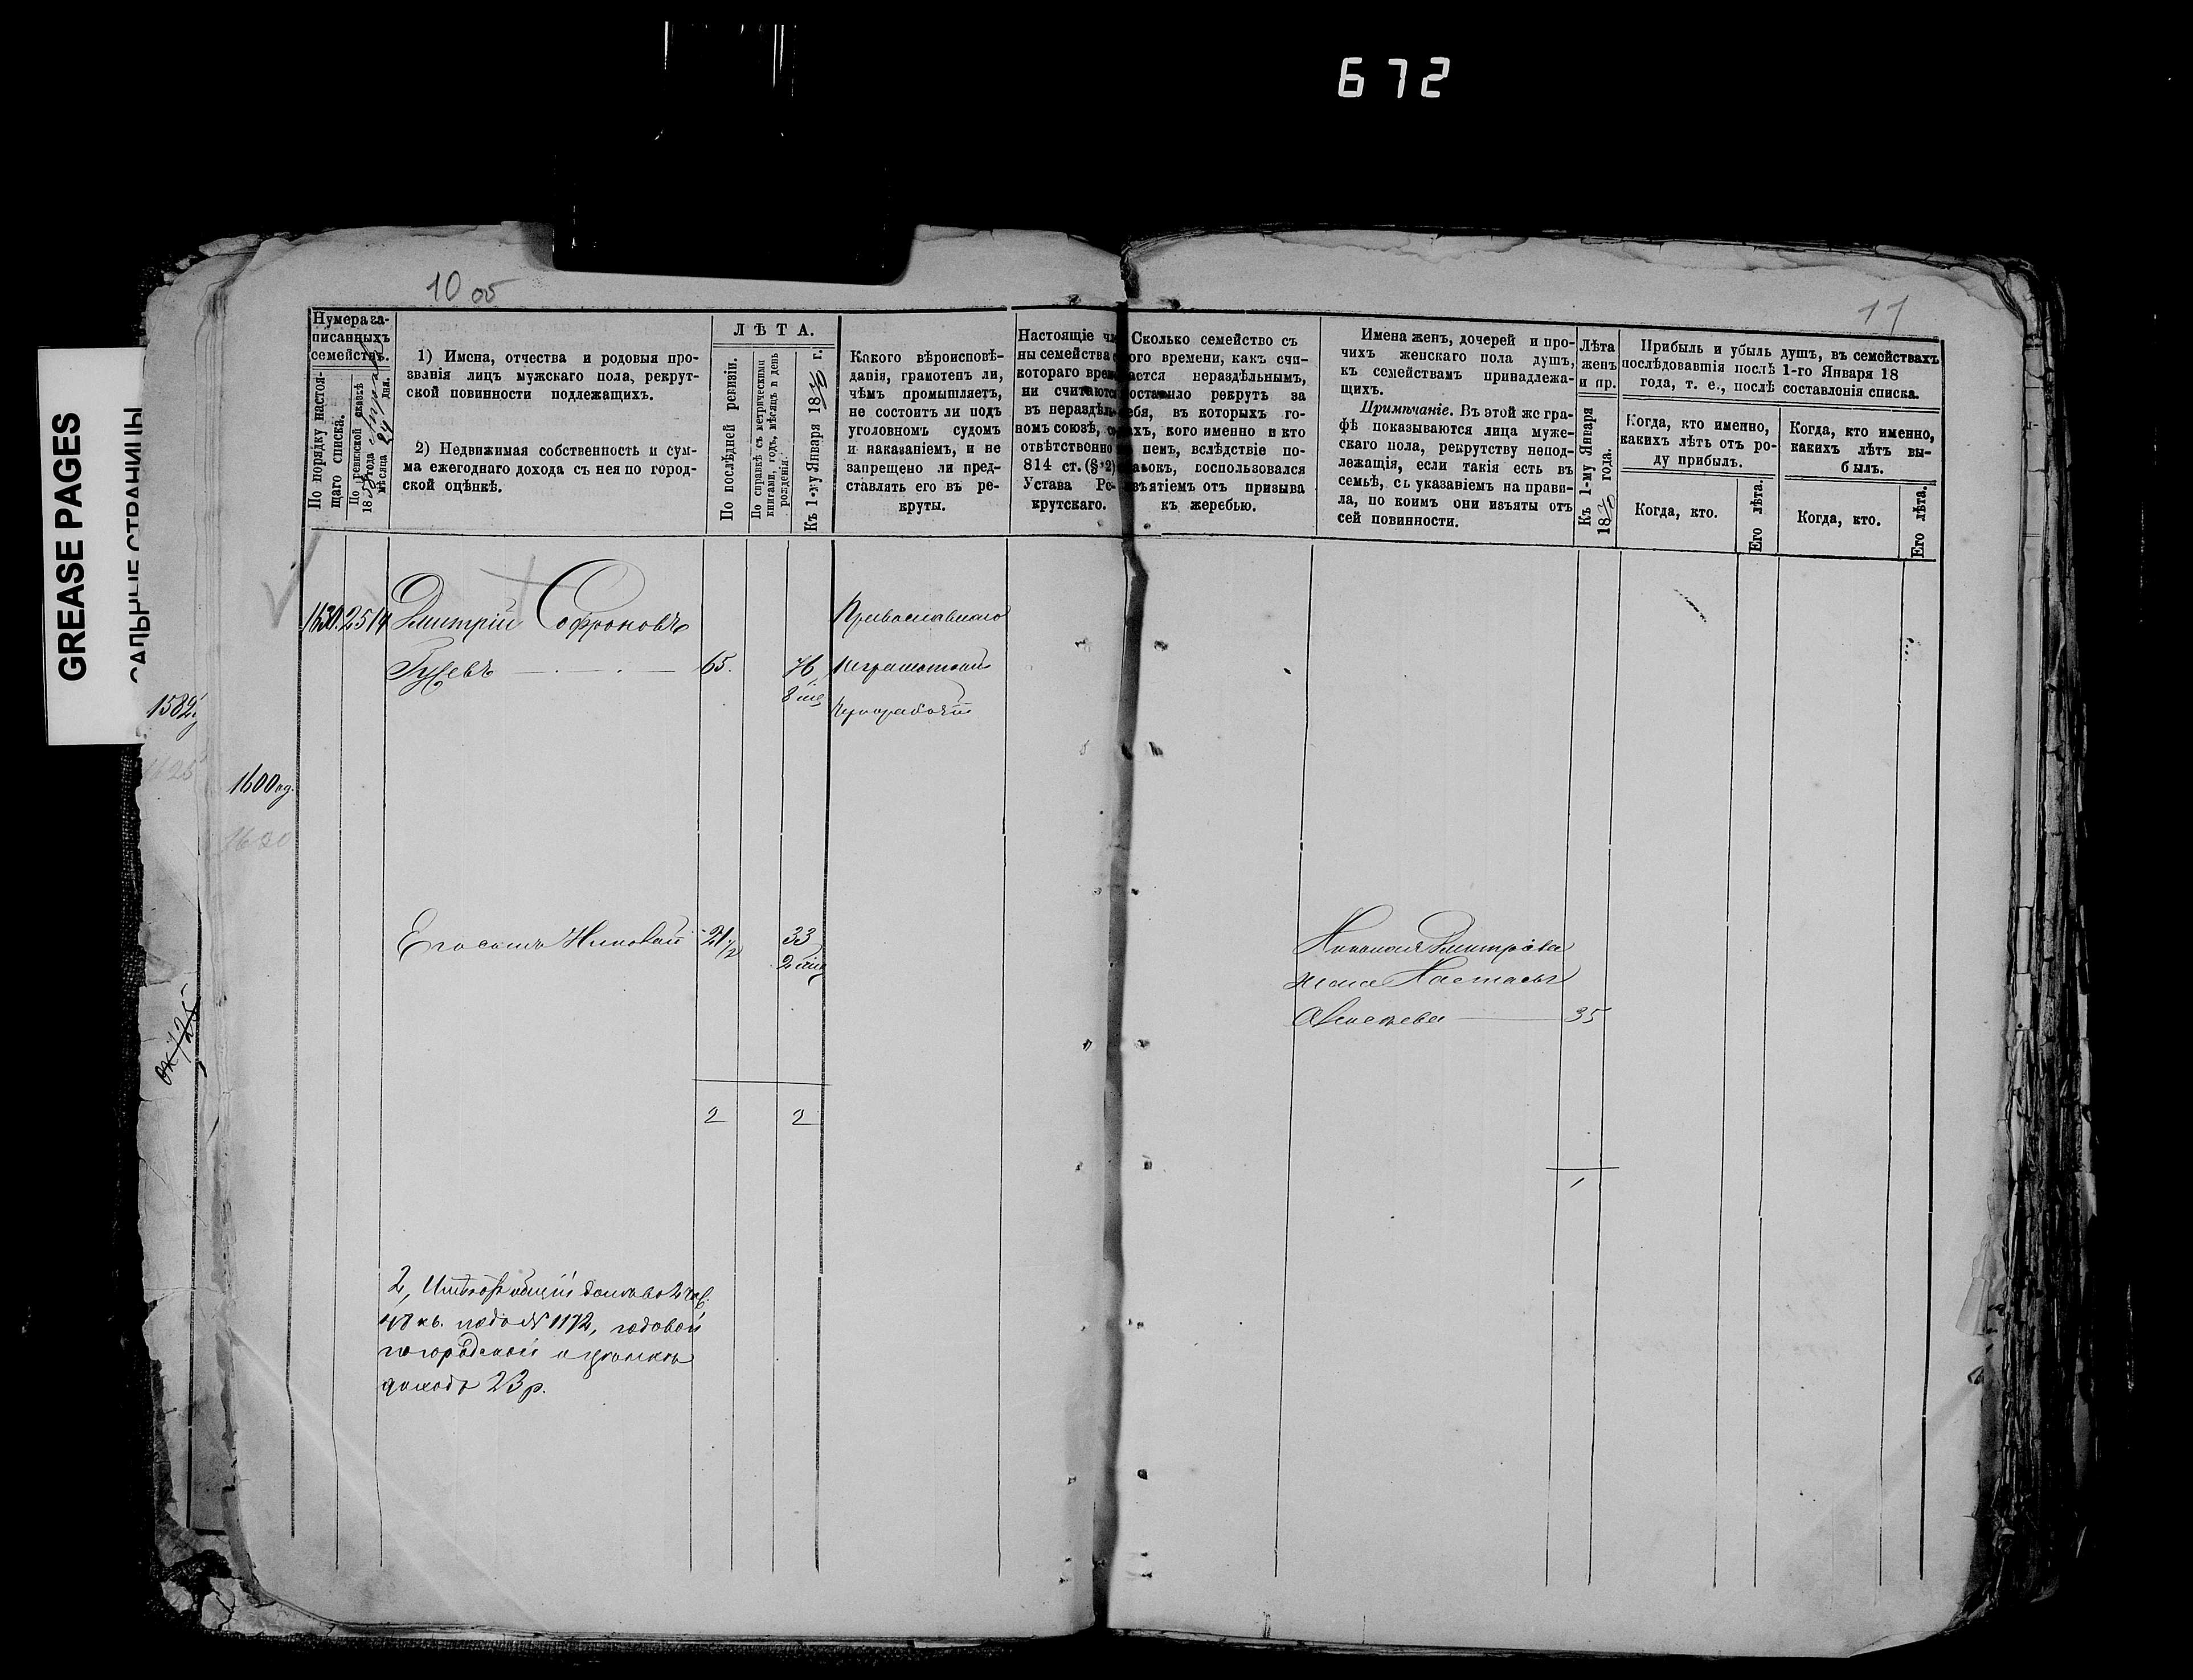 672
GREASE PAGES
САЛЬНЫЕ СТРАНИЦЫ
10 об
11
Нумера за-
писанныхъ
семействъ.
По порядку настоя-
щаго списка.
По ревизской сказкѣ
18 года
мѣсяца 24 дня.
1) Имена, отчества и родовыя про-
званія лицъ мужскаго пола, рекрут-
ской повинности подлежащихъ.
2) Недвижимая собственность и сум-
ма ежегоднаго дохода съ нея по город-
ской оцѣнкѣ.
ЛѢТА.
По послѣдней ревизіи.
По справкѣ съ метрическими
книгами, годъ, мѣсяцъ и день
рожденія.
Къ 1-му Января 1870 г.
Какого вѣроисповѣ-
данія, грамотенъ ли,
чѣмъ промышляетъ,
не состоитъ ли подъ
уголовнымъ судомъ
и наказаніемъ, и не
запрещено ли пред-
ставлять его въ ре-
круты.
Настоящіе чле
ны семейства с
котораго врем
ни считаютс
въ нераздѣль-
номъ союзѣ,
отвѣтственно
814 ст. (§ 2)
Устава Ре-
крутскаго.
Сколько семейство съ
ого времени, какъ счи-
ается нераздѣльнымъ,
оставило рекрутъ за
ебя, въ которыхъ го-
ахъ, кого именно и кто
немъ, вслѣдствіе по-
авокъ, воспользовался
зъятіемъ отъ призыва
къ жеребью.
Имена женъ, дочерей и про-
чихъ женскаго пола душъ,
къ семействамъ принадлежа-
щихъ.
Примѣчаніе. Въ этой же гра-
фѣ показываются лица муже-
скаго пола, рекрутству непод-
лежащія, если такія есть въ
семьѣ, съ указаніемъ на прави-
ла, по коимъ они изъяты отъ
сей повинности.
Лѣта
женъ
и пр.
Къ 1-му Января
1870 года.
Прибыль и убыль душъ, въ семействахъ
послѣдовавшія послѣ 1-го Января 18
года, т. е., послѣ составленія списка.
Когда, кто именно,
какихъ лѣтъ отъ ро-
ду прибылъ.
Когда, кто именно,
какихъ лѣтъ вы-
былъ.
Когда, кто.
Его лѣта.
Когда, кто.
Его лѣта.
1630. 2514 Дмитрій Софроновъ Православнаго
Гусевъ 65. 76 неграмотный
8 мѣ
чернорабочій
1582
1625
1600
1630
Его сынъ Николай 21 1/2 33
2 мѣ
Николая Дмитріева
жена Настасья
Алексѣева 35
2 2
1
2, Имѣютъ общій домъ во 2 час.
48 кв. подъ № 1172, годовой
по городской оцѣнкѣ
доходъ 23 р.